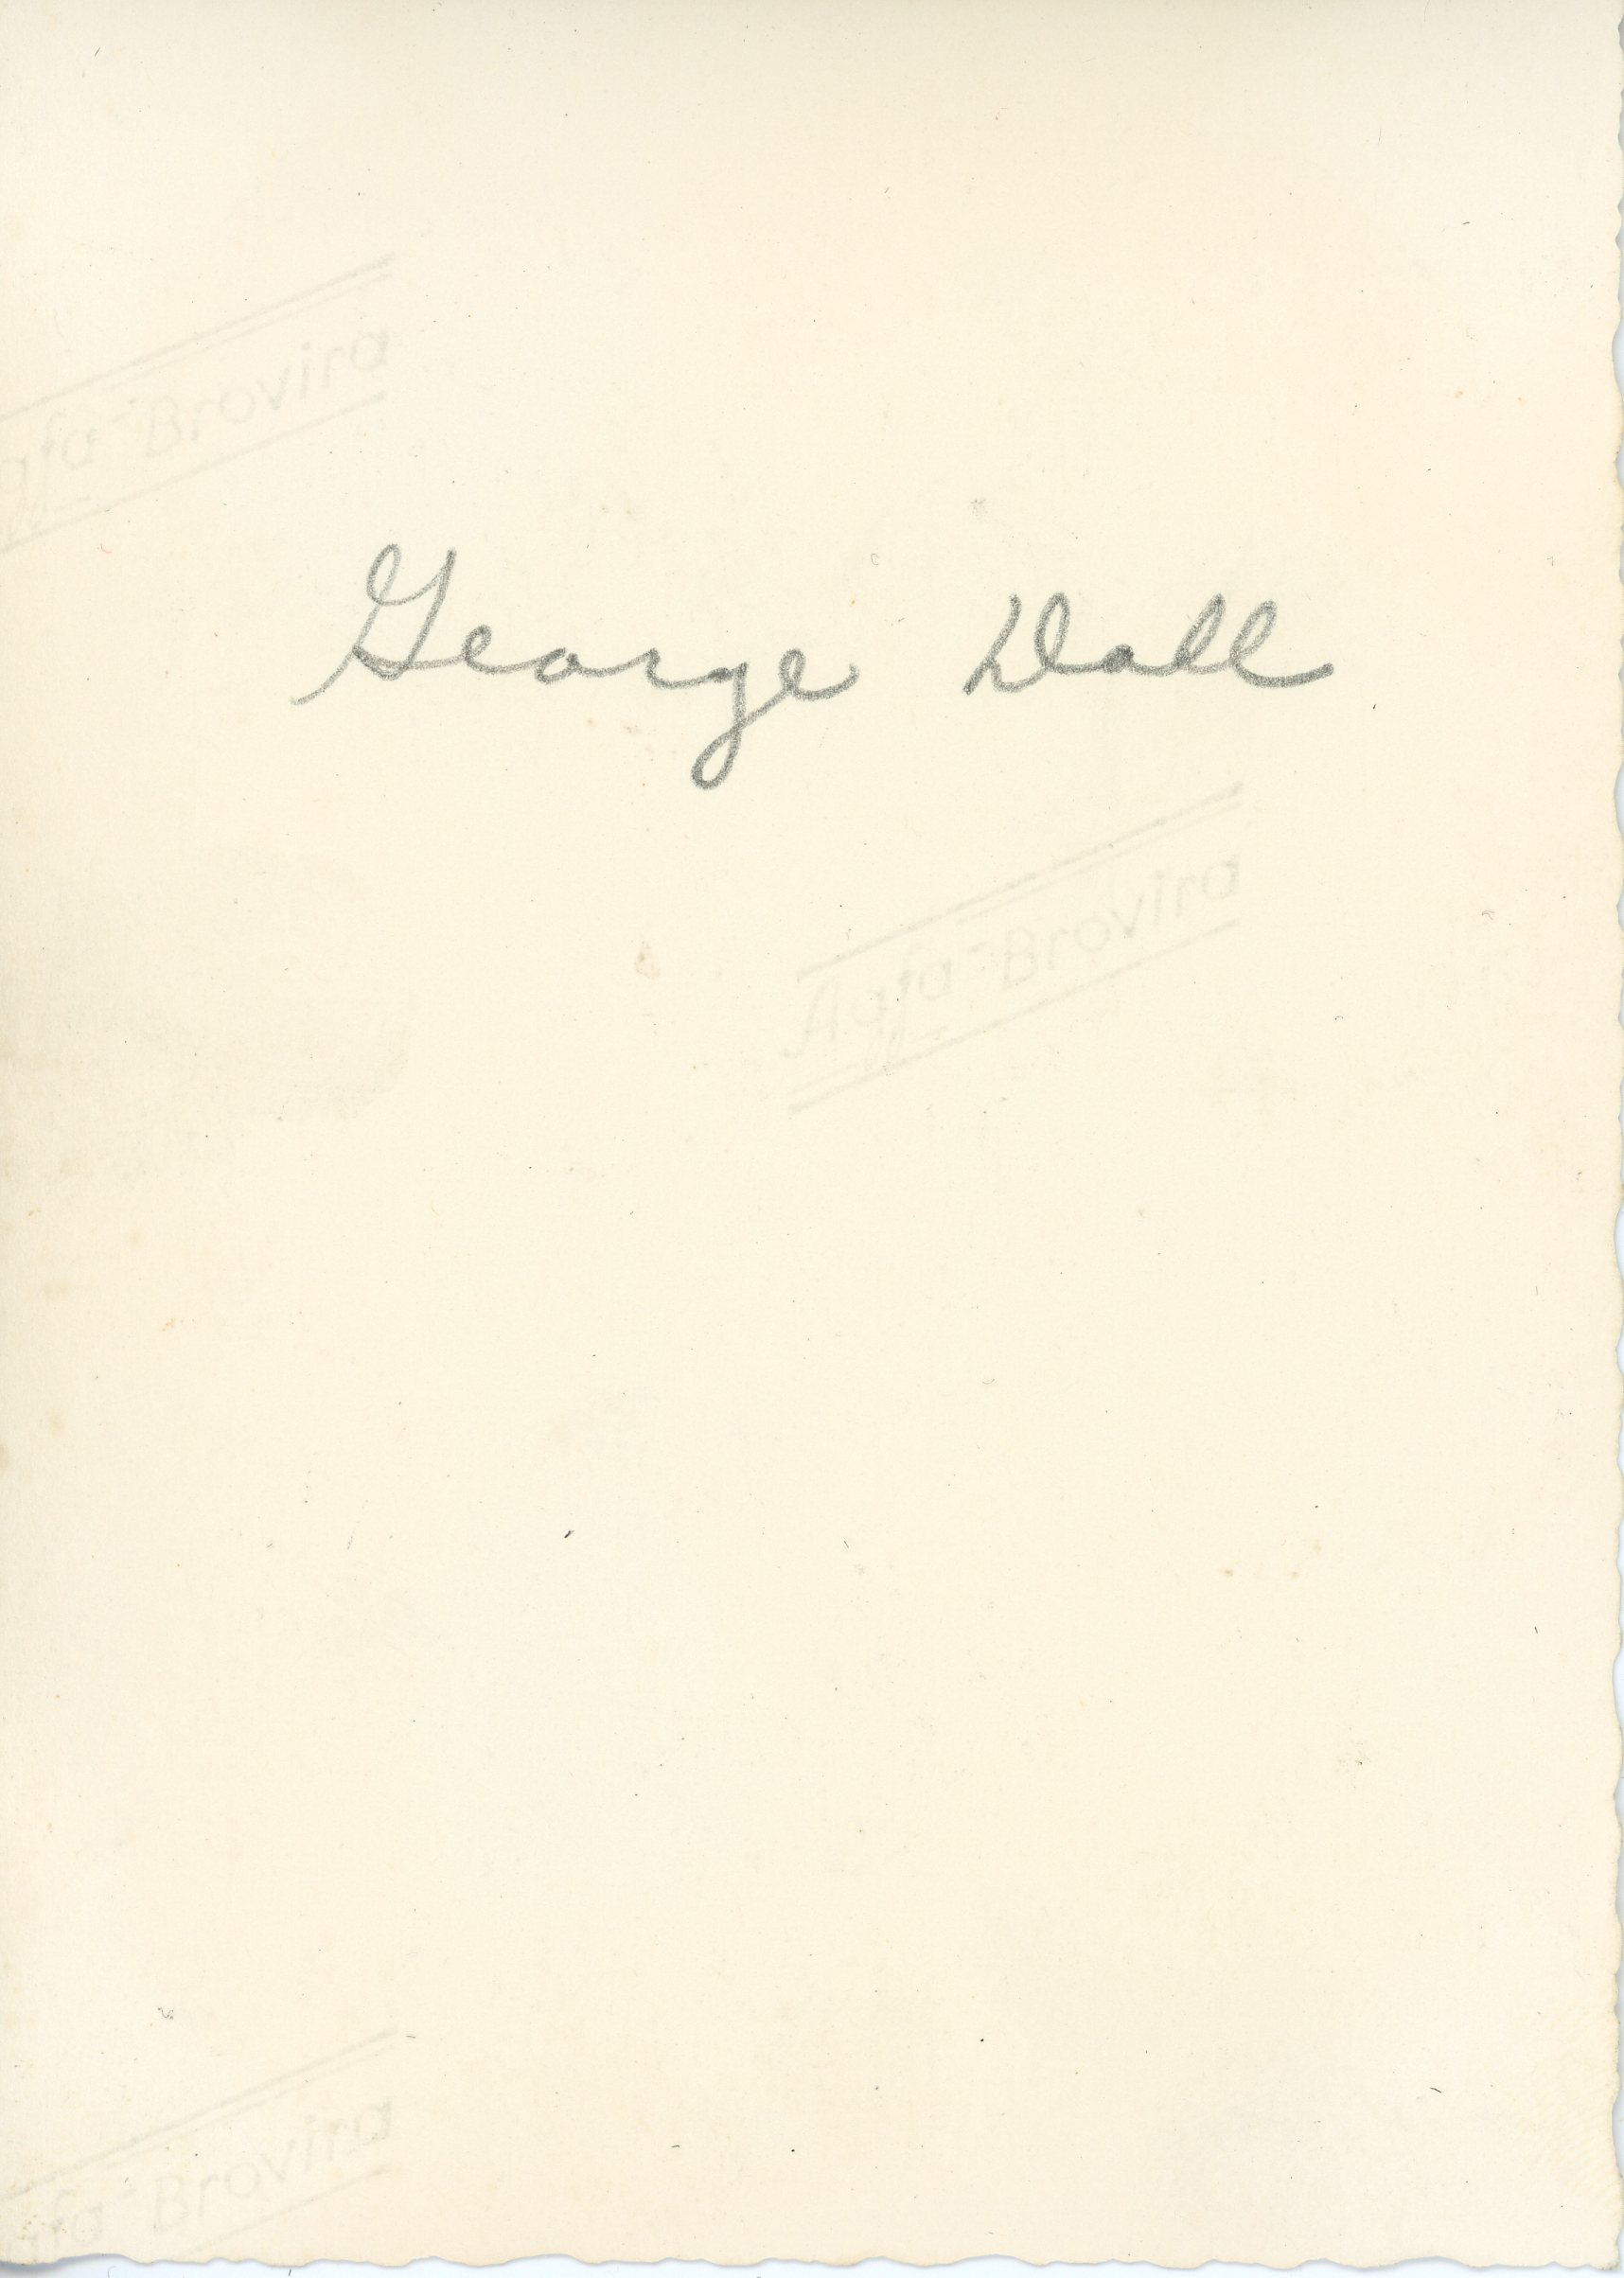 Agfa-Brovira
George Doll
Agfa-Brovira
Agfa-Brovira